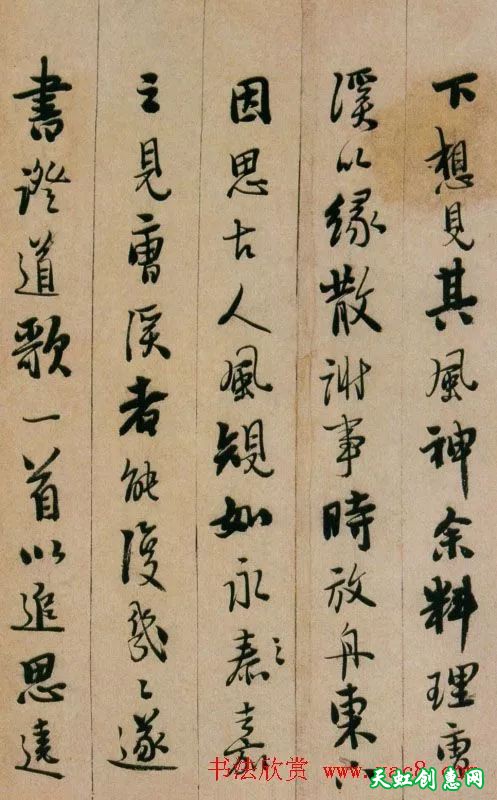 下想見其風神余料理曹
溪以緣散謝事時放舟東江
因思古人風規如永嘉
之見曹溪者能復幾幾遂
書證道歌一首以追思遠
书法欣赏 www.yac8.com
天虹创惠网